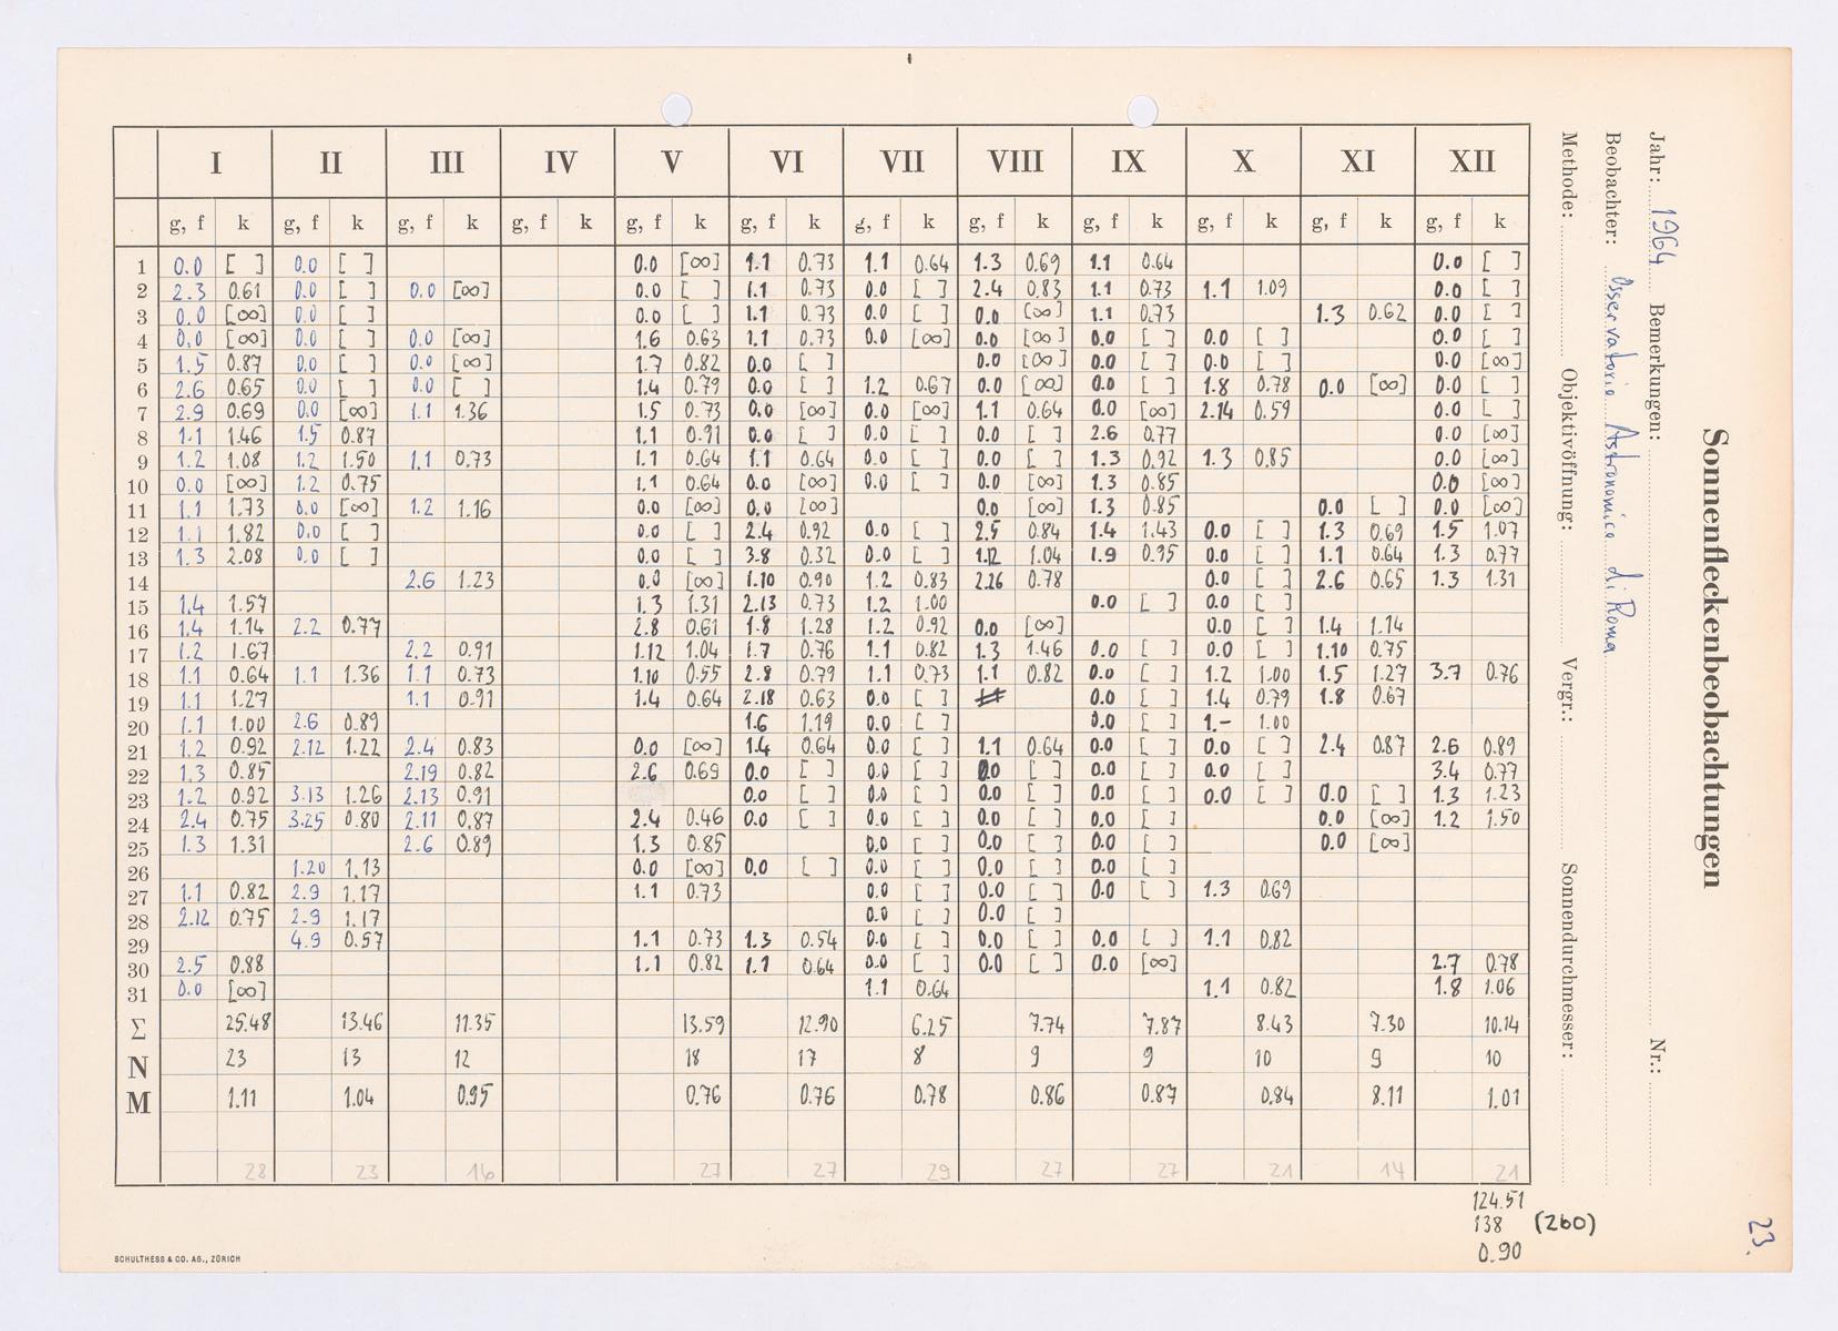 Sonnenfleckenbeobachtungen
Jahr: 1964 Bemerkungen: Nr.:
Beobachter: Osservatorio Astronomico di Roma
Methode: Objektivöffnung: Vergr.: Sonnendurchmesser:
23.
I II III IV V VI VII VIII IX X XI XII
g, f k g, f k g, f k g, f k g, f k g, f k g, f k g, f k g, f k g, f k g, f k g, f k
1 0.0 [ ] 0.0 [ ] 0.0 [∞] 1.1 0.73 1.1 0.64 1.3 0.69 1.1 0.64 0.0 [ ]
2 2.3 0.61 0.0 [ ] 0.0 [∞] 0.0 [ ] 1.1 0.73 0.0 [ ] 2.4 0.83 1.1 0.73 1.1 1.09 0.0 [ ]
3 0.0 [∞] 0.0 [ ] 0.0 [ ] 1.1 0.73 0.0 [ ] 0.0 [∞] 1.1 0.73 1.3 0.62 0.0 [ ]
4 0.0 [∞] 0.0 [ ] 0.0 [∞] 1.6 0.63 1.1 0.73 0.0 [∞] 0.0 [∞] 0.0 [ ] 0.0 [ ] 0.0 [ ]
5 1.5 0.87 0.0 [ ] 0.0 [∞] 1.7 0.82 0.0 [ ] 0.0 [∞] 0.0 [ ] 0.0 [ ] 0.0 [∞]
6 2.6 0.65 0.0 [ ] 0.0 [ ] 1.4 0.79 0.0 [ ] 1.2 0.67 0.0 [∞] 0.0 [ ] 1.8 0.78 0.0 [∞] 0.0 [ ]
7 2.9 0.69 0.0 [∞] 1.1 1.36 1.5 0.73 0.0 [∞] 0.0 [∞] 1.1 0.64 0.0 [∞] 2.14 0.59 0.0 [ ]
8 1.1 1.46 1.5 0.87 1.1 0.91 0.0 [ ] 0.0 [ ] 0.0 [ ] 2.6 0.77 0.0 [∞]
9 1.2 1.08 1.2 1.50 1.1 0.73 1.1 0.64 1.1 0.64 0.0 [ ] 0.0 [ ] 1.3 0.92 1.3 0.85 0.0 [∞]
10 0.0 [∞] 1.2 0.75 1.1 0.64 0.0 [∞] 0.0 [ ] 0.0 [∞] 1.3 0.85 0.0 [∞]
11 1.1 1.73 0.0 [∞] 1.2 1.16 0.0 [∞] 0.0 [∞] 0.0 [∞] 1.3 0.85 0.0 [ ] 0.0 [∞]
12 1.1 1.82 0.0 [ ] 0.0 [ ] 2.4 0.92 0.0 [ ] 2.5 0.84 1.4 1.43 0.0 [ ] 1.3 0.69 1.5 1.07
13 1.3 2.08 0.0 [ ] 0.0 [ ] 3.8 0.32 0.0 [ ] 1.12 1.04 1.9 0.95 0.0 [ ] 1.1 0.64 1.3 0.77
14 2.6 1.23 0.0 [∞] 1.10 0.90 1.2 0.83 2.26 0.78 0.0 [ ] 2.6 0.65 1.3 1.31
15 1.4 1.57 1.3 1.31 2.13 0.73 1.2 1.00 0.0 [ ] 0.0 [ ]
16 1.4 1.14 2.2 0.77 2.8 0.61 1.8 1.28 1.2 0.92 0.0 [∞] 0.0 [ ] 1.4 1.14
17 1.2 1.67 2.2 0.91 1.12 1.04 1.7 0.76 1.1 0.82 1.3 1.46 0.0 [ ] 0.0 [ ] 1.10 0.75
18 1.1 0.64 1.1 1.36 1.1 0.73 1.10 0.55 2.8 0.79 1.1 0.73 1.1 0.82 0.0 [ ] 1.2 1.00 1.5 1.27 3.7 0.76
19 1.1 1.27 1.1 0.91 1.4 0.64 2.18 0.63 0.0 [ ] 0.0 [ ] 1.4 0.79 1.8 0.67
20 1.1 1.00 2.6 0.89 1.6 1.19 0.0 [ ] 0.0 [ ] 1.– 1.00
21 1.2 0.92 2.12 1.22 2.4 0.83 0.0 [∞] 1.4 0.64 0.0 [ ] 1.1 0.64 0.0 [ ] 0.0 [ ] 2.4 0.87 2.6 0.89
22 1.3 0.85 2.19 0.82 2.6 0.69 0.0 [ ] 0.0 [ ] 0.0 [ ] 0.0 [ ] 0.0 [ ] 3.4 0.77
23 1.2 0.92 3.13 1.26 2.13 0.91 0.0 [ ] 0.0 [ ] 0.0 [ ] 0.0 [ ] 0.0 [ ] 0.0 [ ] 1.3 1.23
24 2.4 0.75 3.25 0.80 2.11 0.87 2.4 0.46 0.0 [ ] 0.0 [ ] 0.0 [ ] 0.0 [ ] 0.0 [∞] 1.2 1.50
25 1.3 1.31 2.6 0.89 1.3 0.85 0.0 [ ] 0.0 [ ] 0.0 [ ] 0.0 [∞]
26 1.20 1.13 0.0 [∞] 0.0 [ ] 0.0 [ ] 0.0 [ ] 0.0 [ ]
27 1.1 0.82 2.9 1.17 1.1 0.73 0.0 [ ] 0.0 [ ] 0.0 [ ] 1.3 0.69
28 2.12 0.75 2.9 1.17 0.0 [ ] 0.0 [ ]
29 4.9 0.57 1.1 0.73 1.3 0.54 0.0 [ ] 0.0 [ ] 0.0 [ ] 1.1 0.82
30 2.5 0.88 1.1 0.82 1.1 0.64 0.0 [ ] 0.0 [ ] 0.0 [∞] 2.7 0.78
31 0.0 [∞] 1.1 0.64 1.1 0.82 1.8 1.06
Σ 25.48 13.46 11.35 13.59 12.90 6.25 7.74 7.87 8.43 7.30 10.14
N 23 13 12 18 17 8 9 9 10 9 10
M 1.11 1.04 0.95 0.76 0.76 0.78 0.86 0.87 0.84 8.11 1.01
28 23 16 27 27 29 27 27 21 14 21
124.51
138 (260)
0.90
SCHULTHESS & CO. AG., ZÜRICH